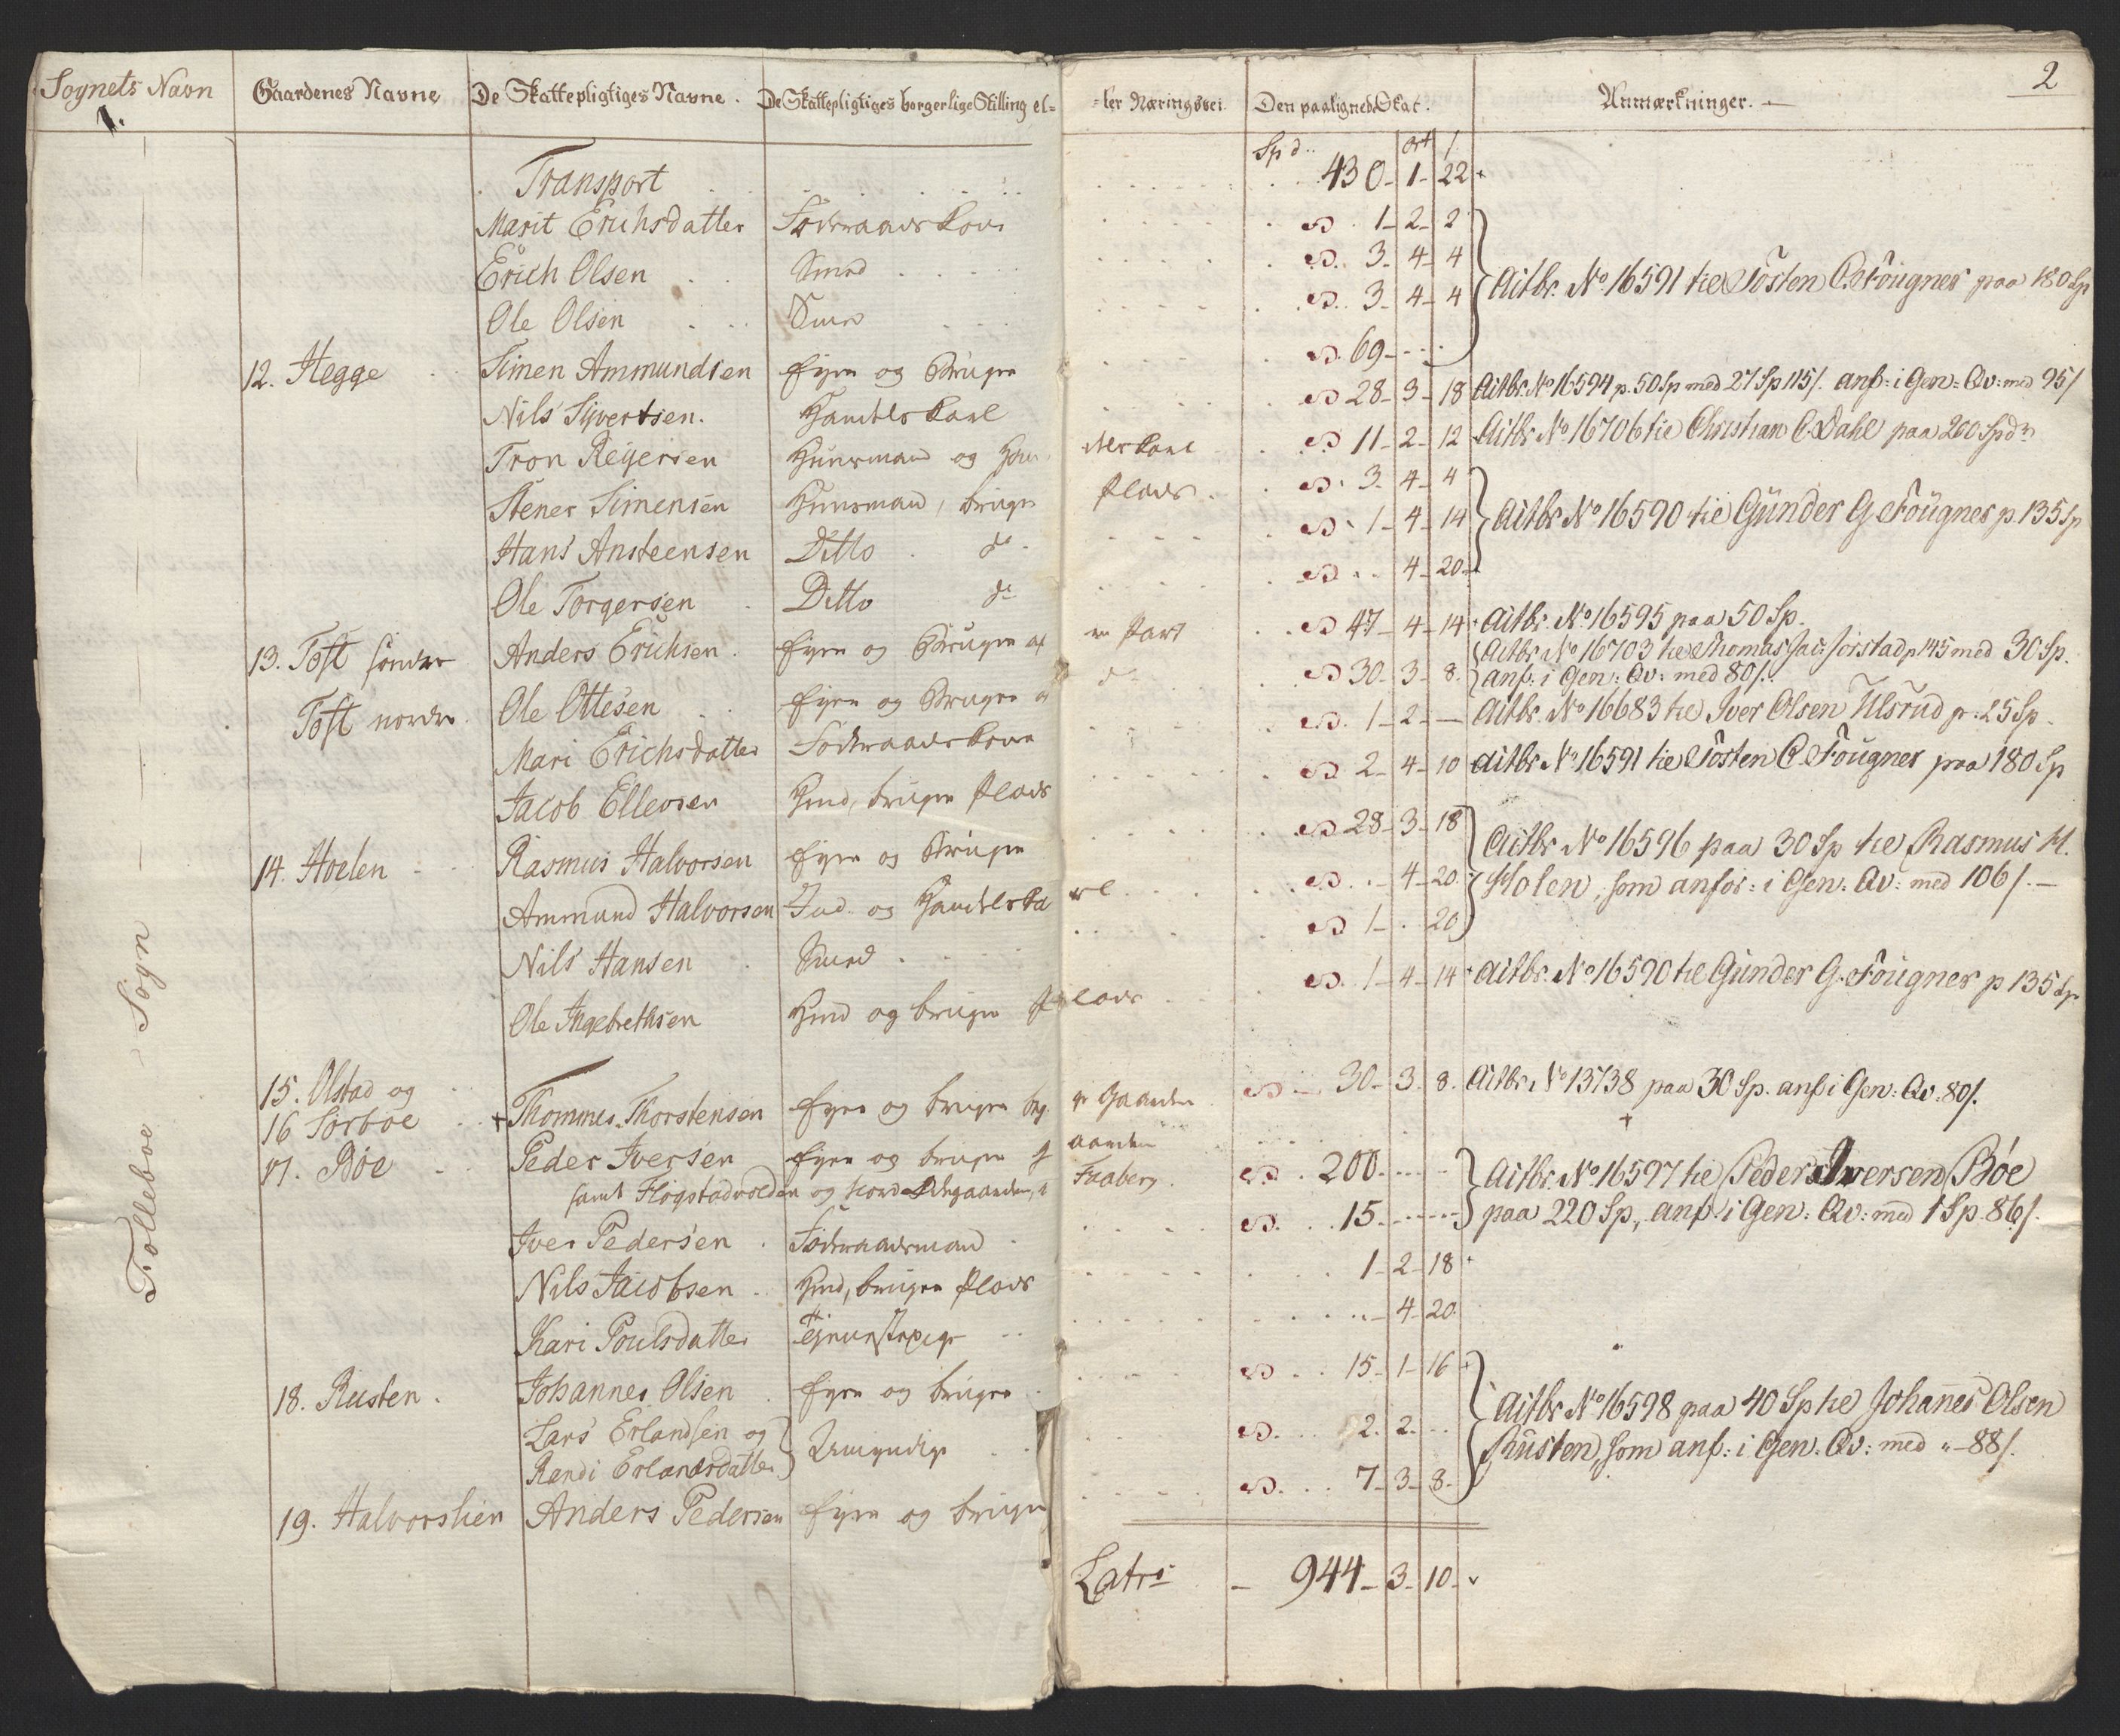 Sognets Navn | Gaardenes Navne | De Skattepligtiges Navne. | De Skattepligtiges borgerlige Stilling el= | =ler Næringsvei. | Den paalignede Skat. | Anmærkninger.
2
1.
Folleboe Sogn
Spd. ort /
Transport 430 - 1 - 22
Marit Erichsdatter Föderaads Kone 1 - 2 - 2
Erich Olsen Smed 3 - 4 - 4
Ole Olsen Smed 3 - 4 - 4
Aitbr. No. 16591 til Tosten C. Fougner paa 180 Sp
12. Hegge Simen Ammundsen Eyer og Bruger 69
Nils Syvertsen. Handels Karl 28 - 3 - 18 Aitbr. No 16594 p. 50 Sp med 27 Sp 115/. anf: i Gen: Qv: med 95/
Tron Reijersen Huusmand og Handels Karl 11 - 2 - 12 Aitbr No 16706 til Christian C. Dahl paa 200 Spdr
Stener Simensen Huusmand, bruger Plads 3 - 4 - 4
Hans Ansteensen Ditto do 1 - 4 - 14
Ole Torgersen Ditto do 4 - 20
Aitbr. No 16590 til Gunder G. Fougner p. 135 Sp
13. Toft söndre Anders Erichsen Eyer og Bruger af en Part 47 - 4 - 14 Aitbr. No 16595 paa 50 Sp.
Toft nordre Ole Ottesen Eyer og Bruger af do 30 - 3 - 8 Aitbr No 16703 til Thomas Jac: Jorstad p 145 med 30 Sp.
anf: i Gen: Qv: med 80/.
Mari Erichsdatter Föderaads Kone 1 - 2 - Aitbr. No 16683 til Iver Olsen Ulsrud p. 25 Sp.
Jacob Ellevsen Hmd, bruger Plads 2 - 4 - 10 Aitbr No 16591 til Tosten C. Fougner paa 180 Sp
14. Hoelen Rasmus Halvorsen Eyer og Bruger 28 - 3 - 18
Ammund Halvorsen Ind. og Handels Karl 4 - 20
Nils Hansen Smed 1 - . 20
Aitbr. No 16596 paa 30 Sp til Rasmus H.
Holen, som anfør: i Gen: Qv: med 106/.
Ole Ingebrethsen Hmd og bruger Plads 1 - 4 - 14 Aitbr. No 16590 til Gunder G. Fougner p 135 Sp
15. Olstad og
16 Sørboe Thommes Thorstensen Eyer og bruger beg ge Gaarden 30 - 3 - 8. Aitbr. No 13738 paa 30 Sp. anf i Gen: Qv: 80/.
17. Bøe Peder Iversen Eyer og bruger gaarden 200
samt Flogstadvolden og nordre Ødegaarden, i Faaberg. 15
Aitbr. No 16597 til Peder Iversen Bøe
paa 220 Sp, anf: i Gen: Qv: med 1 Sp. 86/.
Iver Pedersen Föderaadsmand 1 - 2 - 18
Nils Jacobsen Hmd, bruger Plads 4 - 20
Kari Poulsdatter Tjenestepige 15 - 1 - 16
18. Rusten. Johannes Olsen Eyer og bruger
Lars Erlandsen og
Randi Erlandsdatter Umyndige 2. 2.
19. Halvorslien Anders Pedersen Eyer og bruger 7 - 3 - 8
Aitbr No 16598 paa 40 Sp til Johanes Olsen
Rusten, som anf: i Gen: Qv: med " - 88/.
Latus - 944 - 3 - 10